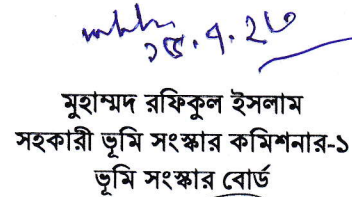 মুহাম্মদ রফিকুল ইসলাম
সহকারী ভূমি সংস্কার কমিশনার-১
ভূমি সংস্কার বোর্ড